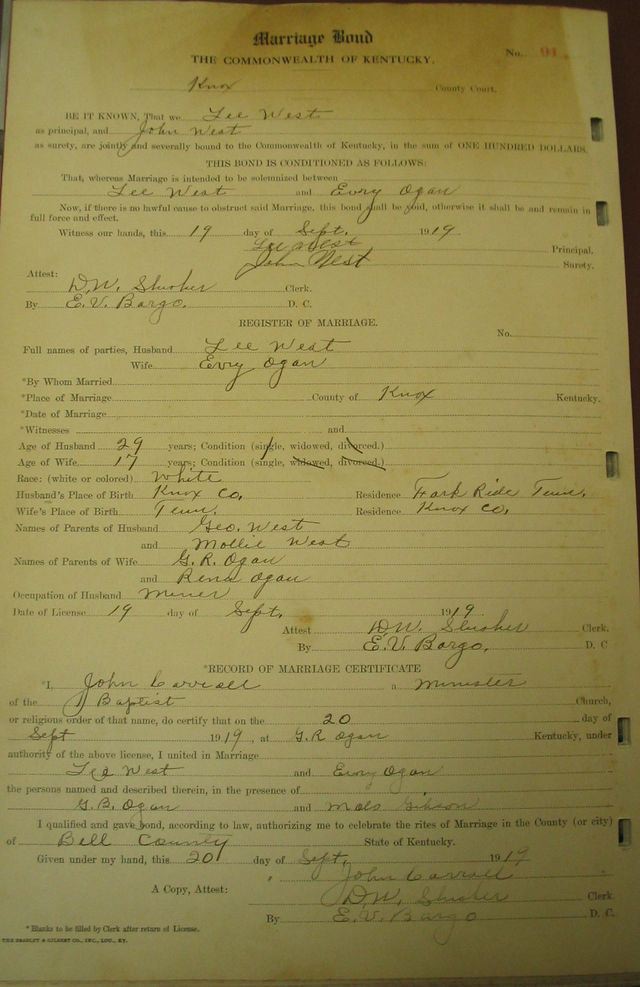 Marriage Bond
THE COMMONWEALTH OF KENTUCKY.
No. 91
Knox County Court.
BE IT KNOWN, That we Lee West
as principal, and John West
as surety, are jointly and severally bound to the Commonwealth of Kentucky, in the sum of ONE HUNDRED DOLLARS.
THIS BOND IS CONDITIONED AS FOLLOWS:
That, whereas Marriage is intended to be solemnized between
Lee West and Evry Ogan
Now, if there is no lawful cause to obstruct said Marriage, this bond shall be void, otherwise it shall be and remain in
full force and effect.
Witness our hands, this 19 day of Sept. 1919.
Lee West Principal.
John West Surety.
Attest:
D.W. Slusher Clerk.
By E.V. Bargo. D. C.
REGISTER OF MARRIAGE.
No.
Full names of parties, Husband Lee West
Wife Evry Ogan
*By Whom Married
*Place of Marriage County of Knox Kentucky.
*Date of Marriage
*Witnesses and
Age of Husband 29 years; Condition (single, widowed, divorced.)
Age of Wife 17 years; Condition (single, widowed, divorced.)
Race: (white or colored) White
Husband's Place of Birth Knox Co. Residence Fork Ride Tenn.
Wife's Place of Birth Tenn. Residence Knox Co.
Names of Parents of Husband Geo. West
and Mollie West
Names of Parents of Wife G.R. Ogan
and Rena Ogan
Occupation of Husband Miner
Date of License 19 day of Sept. 1919.
Attest D.W. Slusher Clerk.
By E.V. Bargo. D. C
*RECORD OF MARRIAGE CERTIFICATE
*I, John Carroll a Minister
of the Baptist Church,
or religious order of that name, do certify that on the 20 day of
Sept 1919, at G.R Ogan Kentucky, under
authority of the above license, I united in Marriage
Lee West and Evry Ogan
the persons named and described therein, in the presence of
G.B. Ogan and Gibson
I qualified and gave bond, according to law, authorizing me to celebrate the rites of Marriage in the County (or city)
of Bell County State of Kentucky.
Given under my hand, this 20 day of Sept, 1919
John Carroll
A Copy, Attest: D.W. Slusher Clerk
By E.V. Bargo D. C.
* Blanks to be filled by Clerk after return of License.
THE BRADLEY & GILBERT CO., INC., LOU., KY.